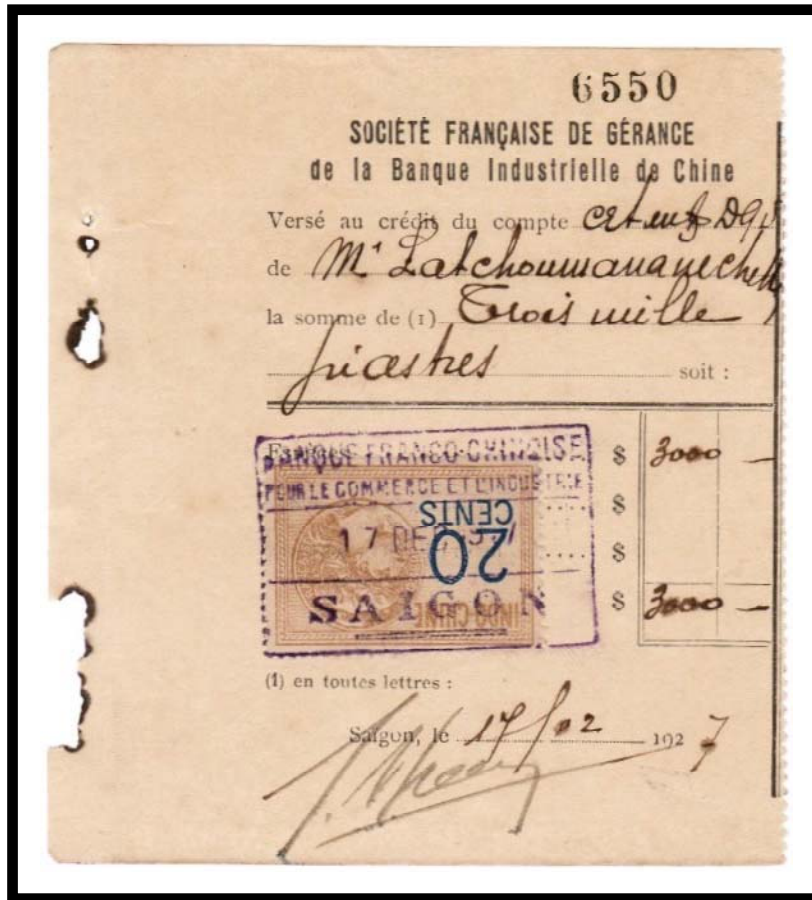 6550
SOCIÉTÉ FRANÇAISE DE GÉRANCE
de la Banque Industrielle de Chine
Versé au crédit du compte
de Mr Latchoumananechetty
la somme de (1) Trois mille
piastres soit :
BANQUE FRANCO-CHINOISE $ 3000 —
POUR LE COMMERCE ET L'INDUSTRIE
20 CENTS $
17 DEC $
SAIGON $ 3000 —
INDO-CHINE
(1) en toutes lettres :
Saigon, le 17/12 1927